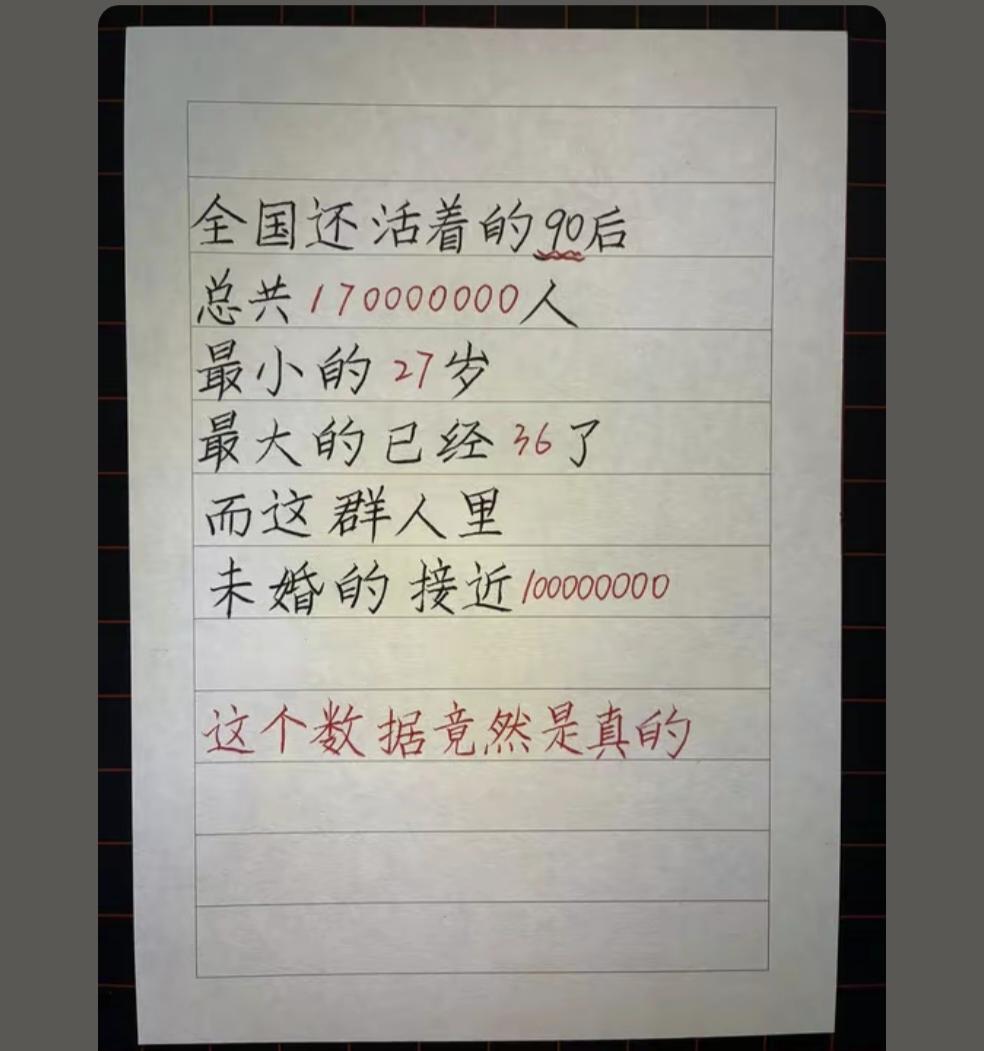 全国还活着的90后
总共170000000人
最小的27岁
最大的已经36了
而这群人里
未婚的接近100000000
这个数据竟然是真的